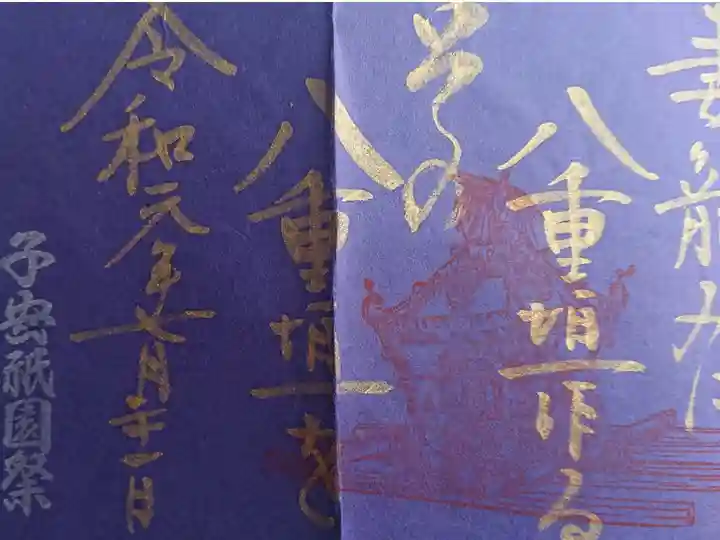 妻籠みに
八重垣作る
その
八重垣を
令和元年七月二十一日
子安祇園祭